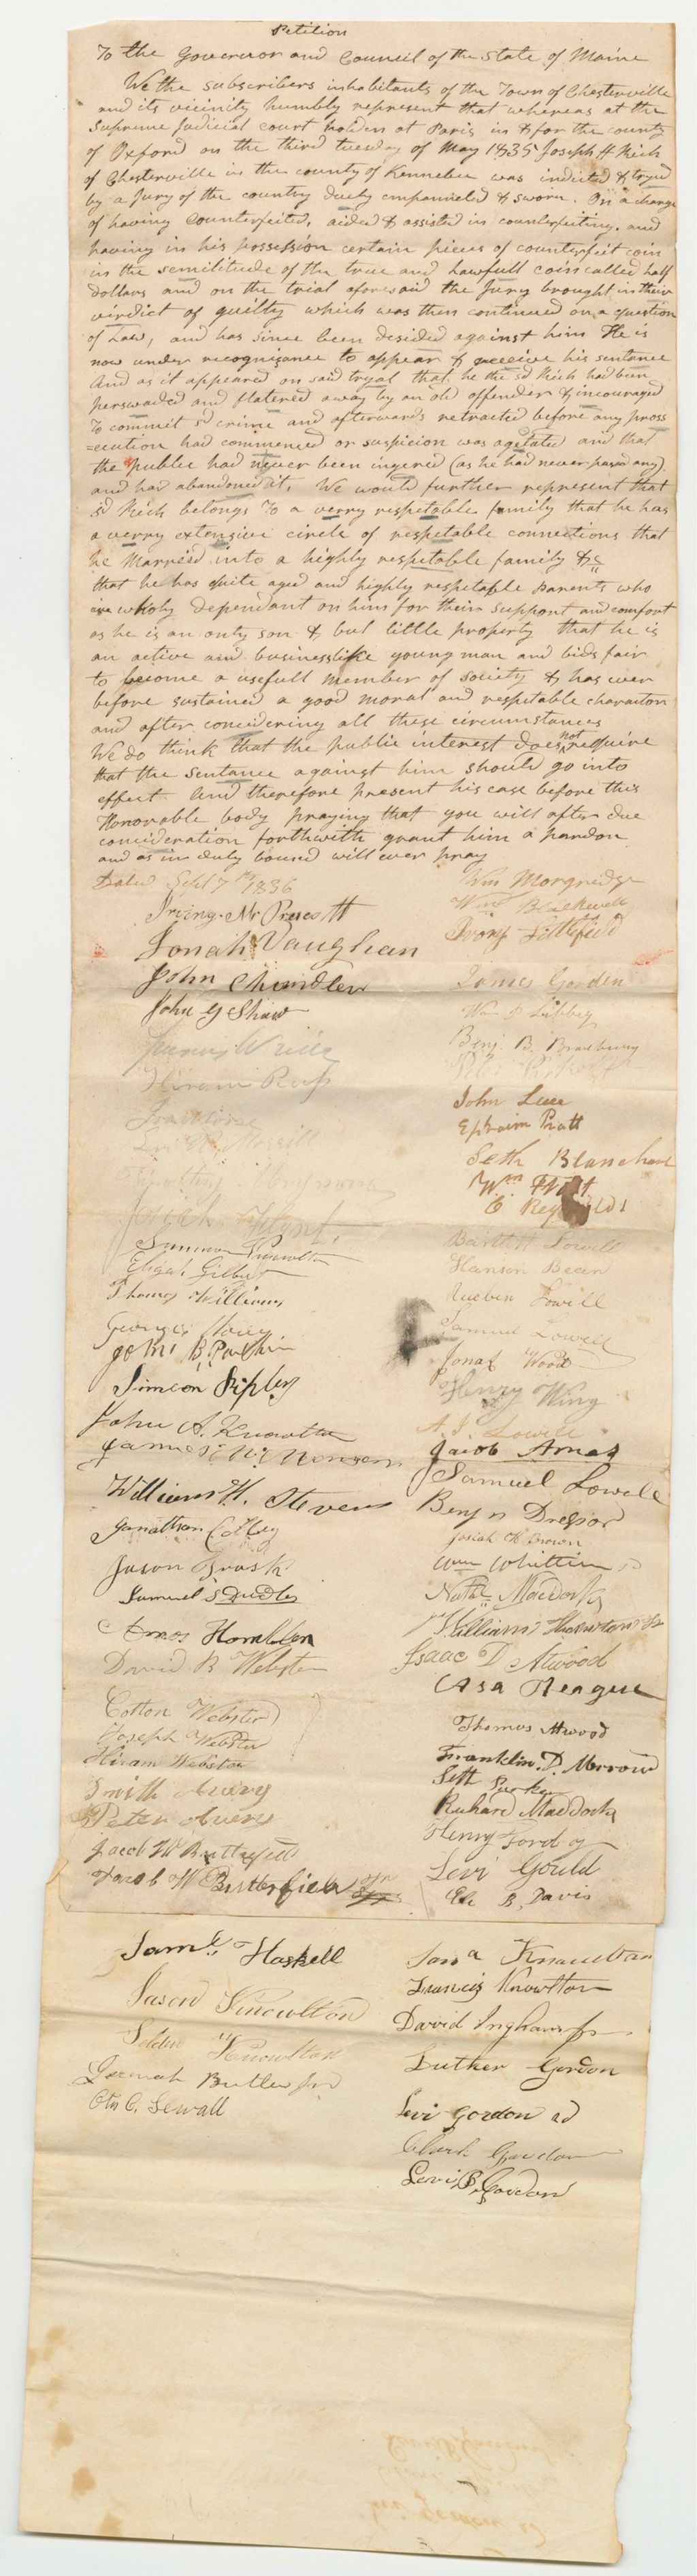 Petition
To the Governor and Council of the State of Maine
We the subscribers inhabitants of the Town of Chesterville
and its vicinity humbly represent that whereas at the
Supreme Judicial court holden at Paris in & for the county
of Oxford on the third tuesday of May 1835 Joseph H Rich
of Chesterville in the county of Kennebec was indicted & tryed
by a Jury of the country duely empanneled & sworn. On a charge
of having counterfeited, aided & assisted in counterfeiting, and
having in his possession certain pieces of counterfeit coin
in the semilitude of the true and lawfull coin called half
dollars and on the trial aforesaid the Jury brought in their
virdict of guilty which was then continued on a question
of Law, and has since been desided against him He is
now under recognisance to appear & receive his sentance
And as it appeared on said tryal that he the sd Rich had been
perswaded and flatered away by an old offender & incouraged
To commit sd crime and afterwards retracted before any pross
=ecution had commenced or suspicion was agetated and that
the public had never been ingered (as he had never passd any)
and had abandoned it. We would further represent that
sd Rich belongs to a verry respetable family that he has
a verry extensive circle of respetable connections that
he Married into a highly respetable family &c
that he has quite aged and highly respetable parents who
are wholy dependant on him for their support and comfort
as he is an only son & but little property that he is
an active and businesslike young man and bids fair
to become a usefull member of society & has ever
before sustained a good moral and respetable character
and after concidering all these circumstances
We do think that the public interest does not require
that the sentance against him should go into
effect and therefore present his case before this
Honorable body praying that you will after due
concideration forthwith grant him a pardon
and as in duty bound will ever pray
Dated Sept 7th 1836
Wm Morgridge
Wm Blackwell
Irving. Prescott
Ivory Littlefield
Jonah Vaughan
John Chandler
James Gorden
John G Shaw
Wm Libbey
Benj. B. Bradbury
Hiram
John
Ephraim Pratt
Seth Blanchard
Wm
Josiah
C
Bartlett Lowell
Knowlton
Hanson Bean
Elijah Gilbert
Thomas Williams
Rueben Lowell
Samuel Lowell
George
John B.
Jonas Wood
Henry Wing
Simeon Sipley
A. S. Lowell
John A. Knowlton
Jacob Ames
James
Samuel Lowell
William H. Stevens
Benj n Dresser
Jonathan Colby
Josiah H Brown
Jason Trask
Wm Whittier
Samuel S Dudley
Nathl Maddocks
Amos Hamblen
William
David B Webster
Isaac D Atwood
Asa Teague
Cotton Webster
Thomas Atwood
Joseph Webster
Franklin. D. Morrow
Hiram Webster
Seth Parker
Smith Avery
Richard Maddocks
Peter Avery
Henry Ford
Jacob W Butterfield
Levi Gould
Jacob W Butterfield
B. Davis
Saml. Haskell
Knowlton
Francis Knowlton
Jason Knowlton
David Ingham Jr
Selden Knowlton
Luther Gordon
Jeremiah Butler
Otis C. Sewall
Levi Gordon 2d
Clark Gordon
Levi B. Gordon